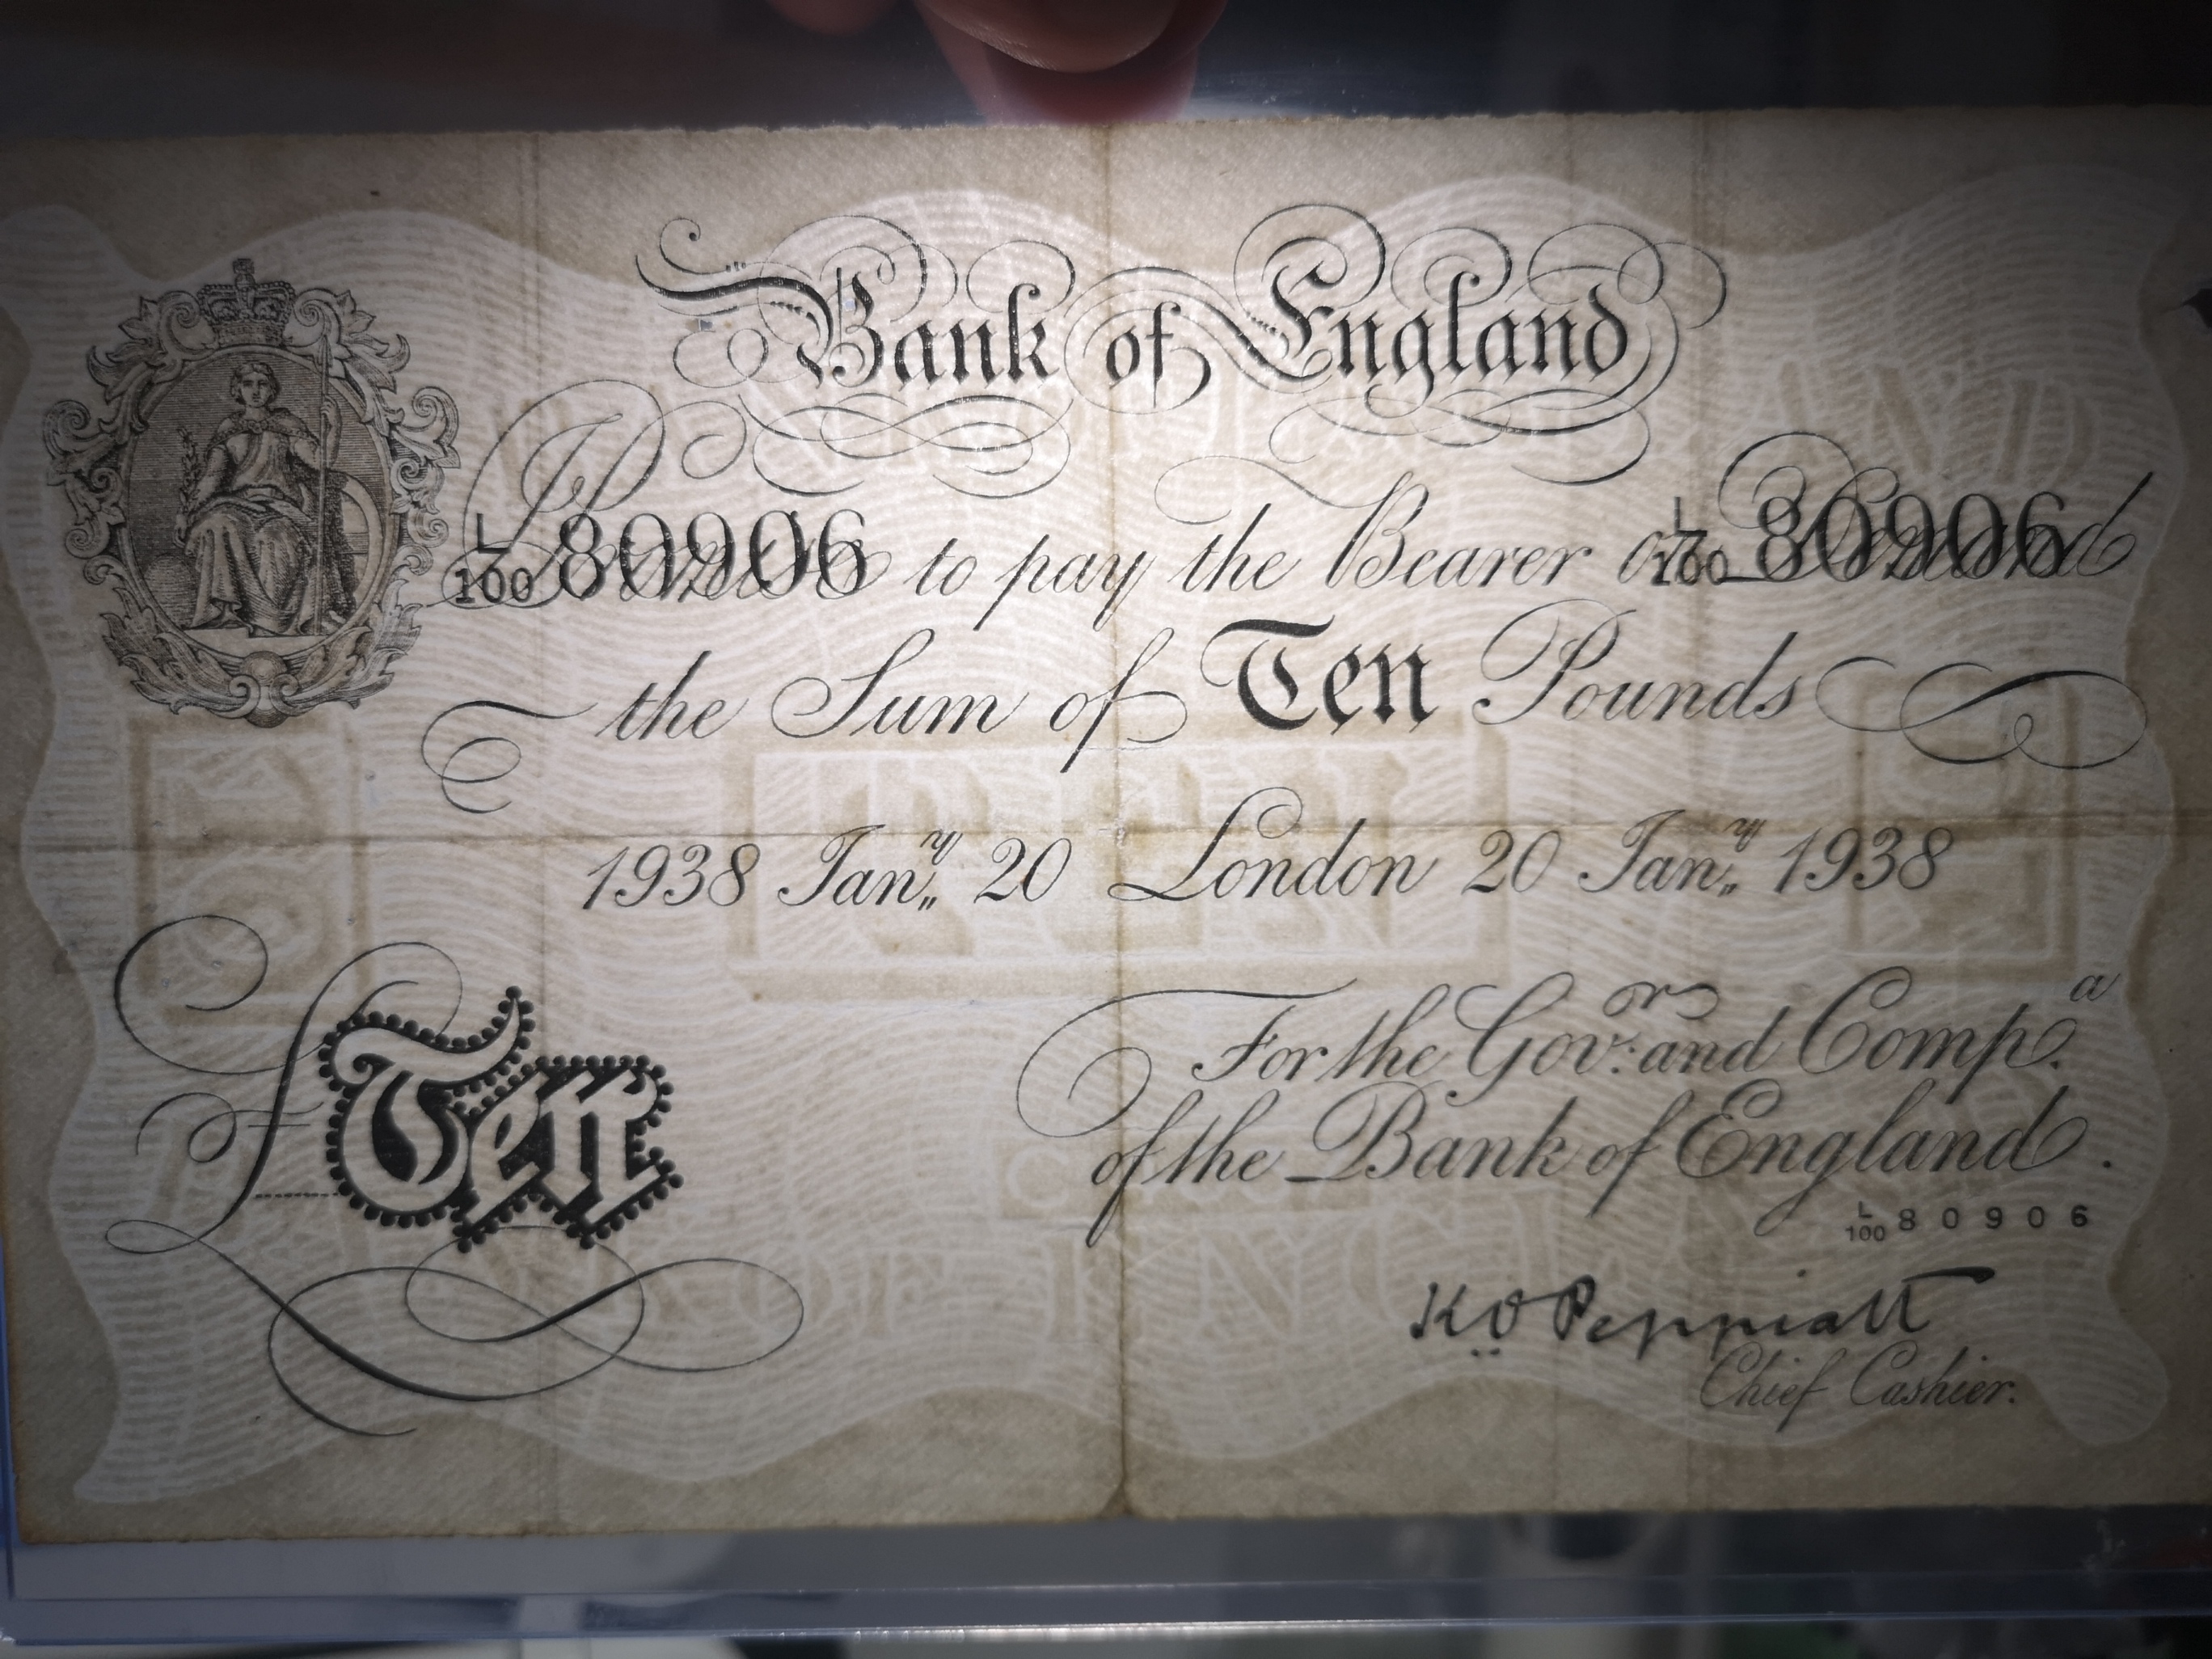 Bank of England
L/100 80906 to pay the Bearer on Demand L/100 80906
the Sum of Ten Pounds
1938 Jan.ʸ 20 London 20 Jan.ʸ 1938
For the Gov.ᵒʳˢ and Comp.ᵃ
of the Bank of England.
£ Ten
L/100 80906
K O Peppiatt
Chief Cashier.
TEN